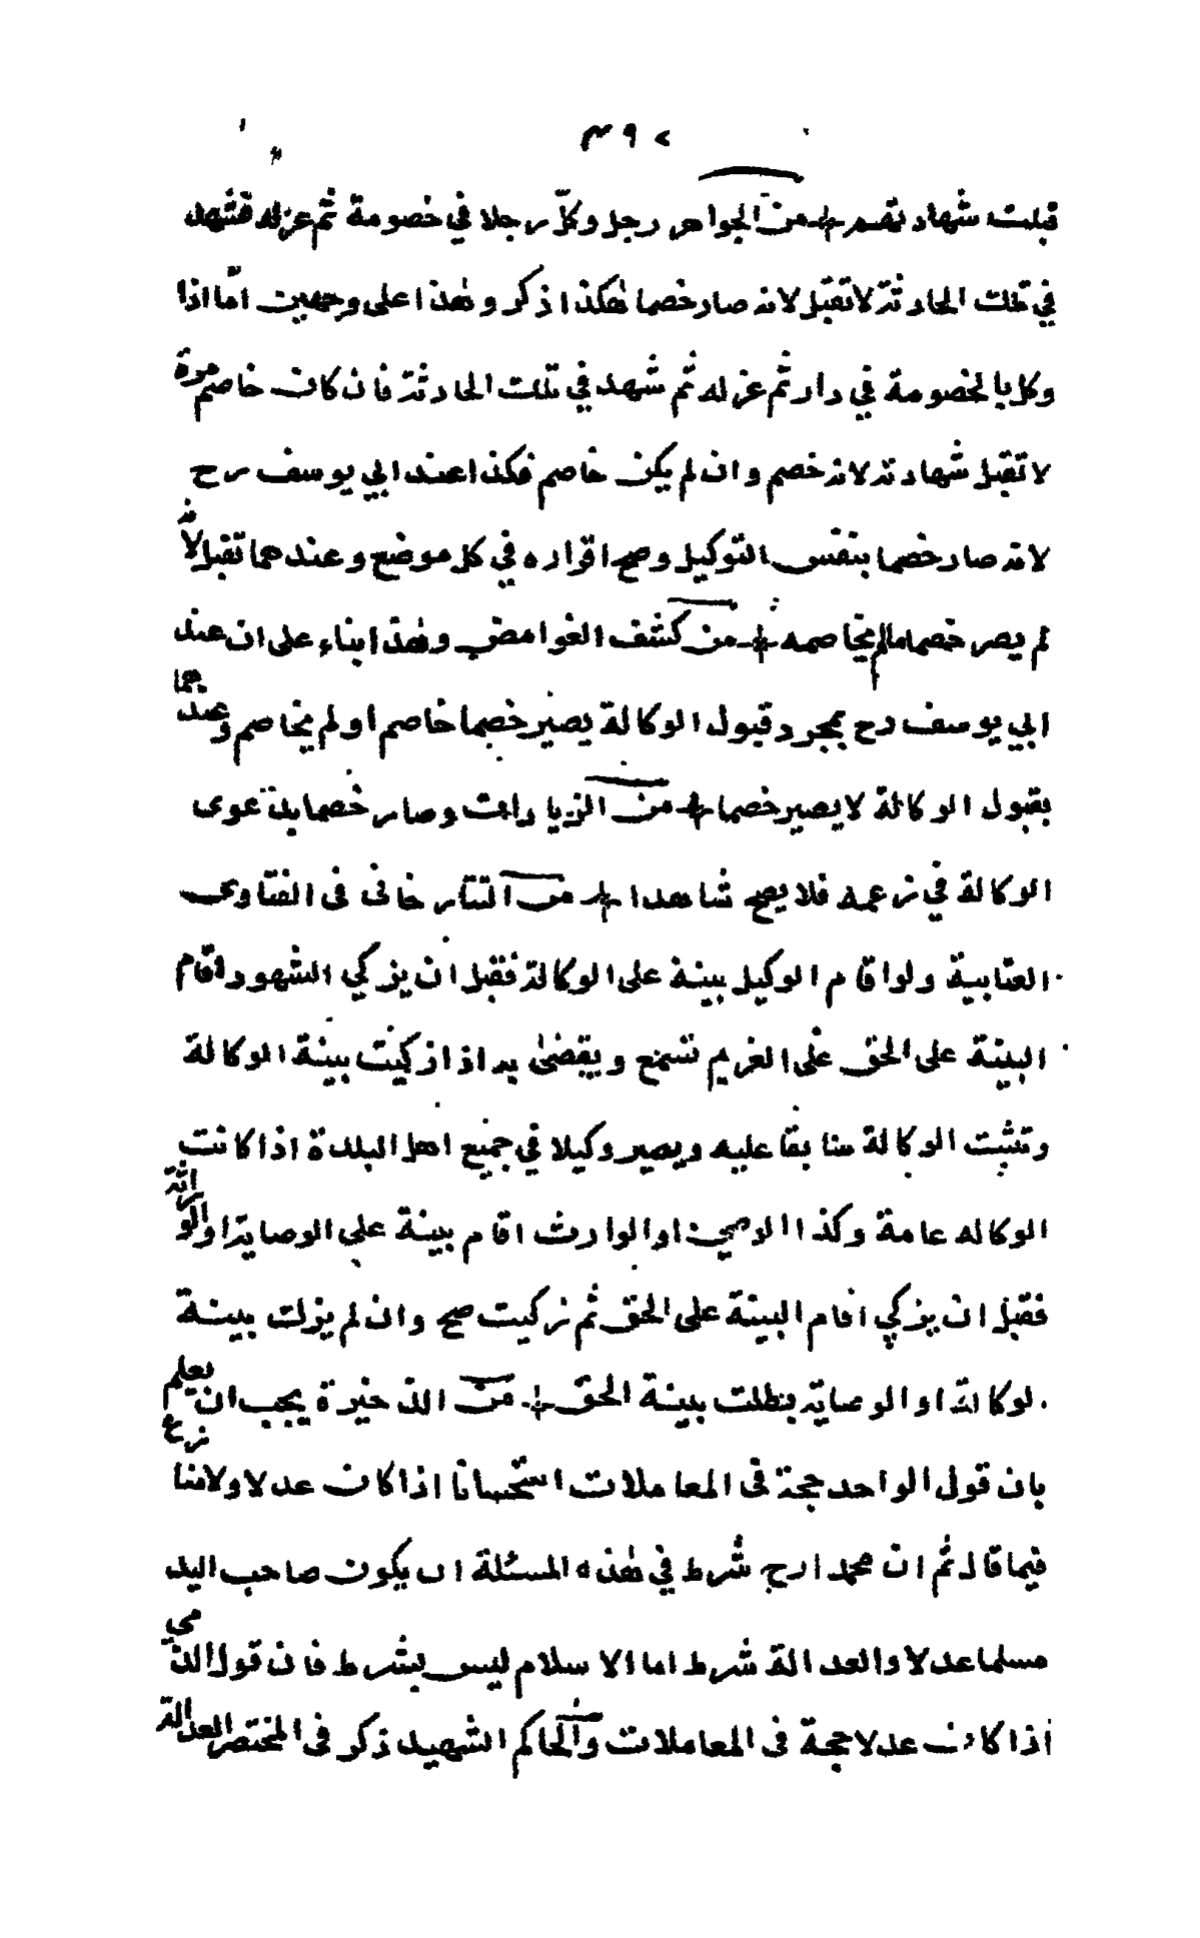 ٤٩٢
قبلت شهادتهم من الجواهر رجل وكّل رجلا في خصومة ثم عزله فشهد
في تلك الحادثة لا تقبل لانه صار خصما هكذا ذكر وهذا على وجهين امّا اذا
وكل بالخصومة في دار ثم عزله ثم شهد في تلك الحادثة فان كان خاصم مرة
لا تقبل شهادته لانه خصم وان لم يكن خاصم فكذا عند ابي يوسف رح
لانه صار خصما بنفس التوكيل وصح اقراره في كل موضع وعندهما تقبل لانه
لم يصر خصما مالم يخاصمه من كشف الغوامض وهذا بناء على ان عند
ابي يوسف رح بمجرد قبول الوكالة يصير خصما خاصم او لم يخاصم وعندهما
بقبول الوكالة لا يصير خصما من الزيادات وصار خصما بدعوى
الوكالة في زعمه فلا يصح شاهدا من التتارخانى فى الفتاوى
العتابية ولو اقام الوكيل بينة على الوكالة فقبل ان يزكي الشهود اقام
البينة على الحق على الغريم تسمع ويقضى به اذا زكيت بينة الوكالة
وتثبت الوكالة سابقا عليه ويصير وكيلا في جميع اهل البلدة اذا كانت
الوكاله عامة وكذا الوصي او الوارث اقام بينة على الوصاية او الوراثة
فقبل ان يزكي اقام البينة على الحق ثم زكيت صح وان لم يزك بينة
لوكالة او الوصاية بطلت بينة الحق من الذخيرة يجب ان تعلم
بان قول الواحد حجة فى المعاملات استحسانا اذا كان عدلا ولا منازع
فيما قال ثم ان محمدا رح شرط في هذه المسئلة ان يكون صاحب اليد
مسلما عدلا والعدالة شرط اما الاسلام ليس بشرط فان قول الذمي
اذا كان عدلا حجة فى المعاملات والحاكم الشهيد ذكر فى المختصر العدالة